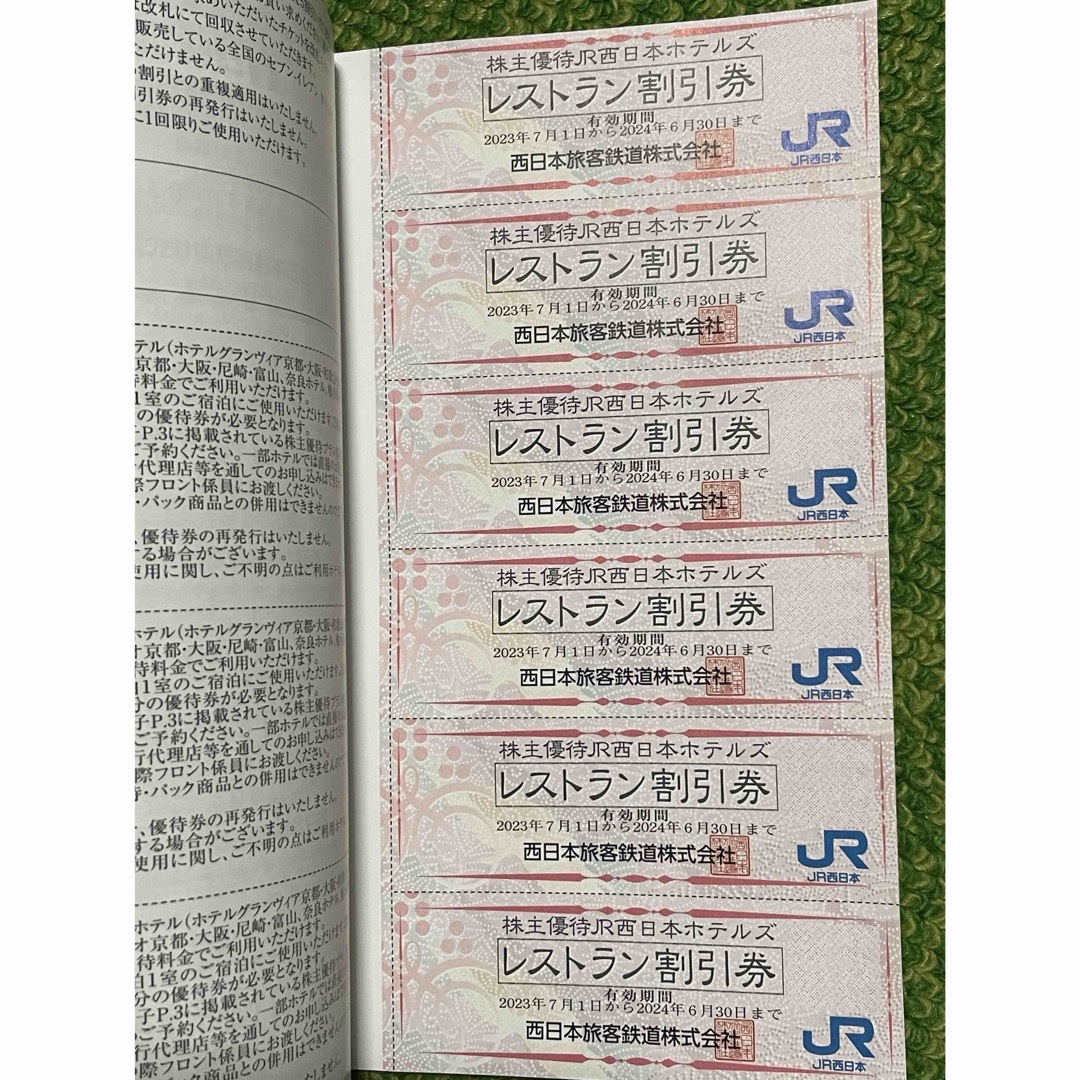 は改札にて回収させていただきます。
販売している全国のセブン-イレブン
ただけません。
割引との重複適用はいたしません。
引券の再発行はいたしません。
に1回限りご使用いただけます。
テル(ホテルグランヴィア京都・大阪・
京都・大阪・尼崎・富山、奈良ホテル、
待料金でご利用いただけます。
1室のご宿泊にご使用いただけます。
の優待券が必要となります。
子P.3に掲載されている株主優待プラン
ご予約ください。一部ホテルでは直接
行代理店等を通してのお申し込みは
際フロント係員にお渡しください。
・パック商品との併用はできません
、優待券の再発行はいたしません。
する場合がございます。
使用に関し、ご不明の点はご利用ホテル
テル(ホテルグランヴィア京都・大阪・
オ京都・大阪・尼崎・富山、奈良ホテル、
待料金でご利用いただけます。
泊1室のご宿泊にご使用いただけます
分の優待券が必要となります。
子P.3に掲載されている株主優待プラン
ご予約ください。一部ホテルでは直接
行代理店等を通してのお申し込みは
際フロント係員にお渡しください。
待・パック商品との併用はできません
、優待券の再発行はいたしません。
する場合がございます。
使用に関し、ご不明の点はご利用ホテ
ホテル(ホテルグランヴィア京都・大阪・
オ京都・大阪・尼崎・富山、奈良ホテル、
待料金でご利用いただけます。
泊1室のご宿泊にご使用いただけます
分の優待券が必要となります。
子P.3に掲載されている株主優待プ
ご予約ください。一部ホテルでは直接
行代理店等を通してのお申し込みは
際フロント係員にお渡しください。
・パック商品との併用はできません
株主優待JR西日本ホテルズ
レストラン割引券
有効期間
2023年7月1日から2024年6月30日まで
西日本旅客鉄道株式会社
JR
JR西日本
株主優待JR西日本ホテルズ
レストラン割引券
有効期間
2023年7月1日から2024年6月30日まで
西日本旅客鉄道株式会社
JR
JR西日本
株主優待JR西日本ホテルズ
レストラン割引券
有効期間
2023年7月1日から2024年6月30日まで
西日本旅客鉄道株式会社
JR
JR西日本
株主優待JR西日本ホテルズ
レストラン割引券
有効期間
2023年7月1日から2024年6月30日まで
西日本旅客鉄道株式会社
JR
JR西日本
株主優待JR西日本ホテルズ
レストラン割引券
有効期間
2023年7月1日から2024年6月30日まで
西日本旅客鉄道株式会社
JR
JR西日本
株主優待JR西日本ホテルズ
レストラン割引券
有効期間
2023年7月1日から2024年6月30日まで
西日本旅客鉄道株式会社
JR
JR西日本